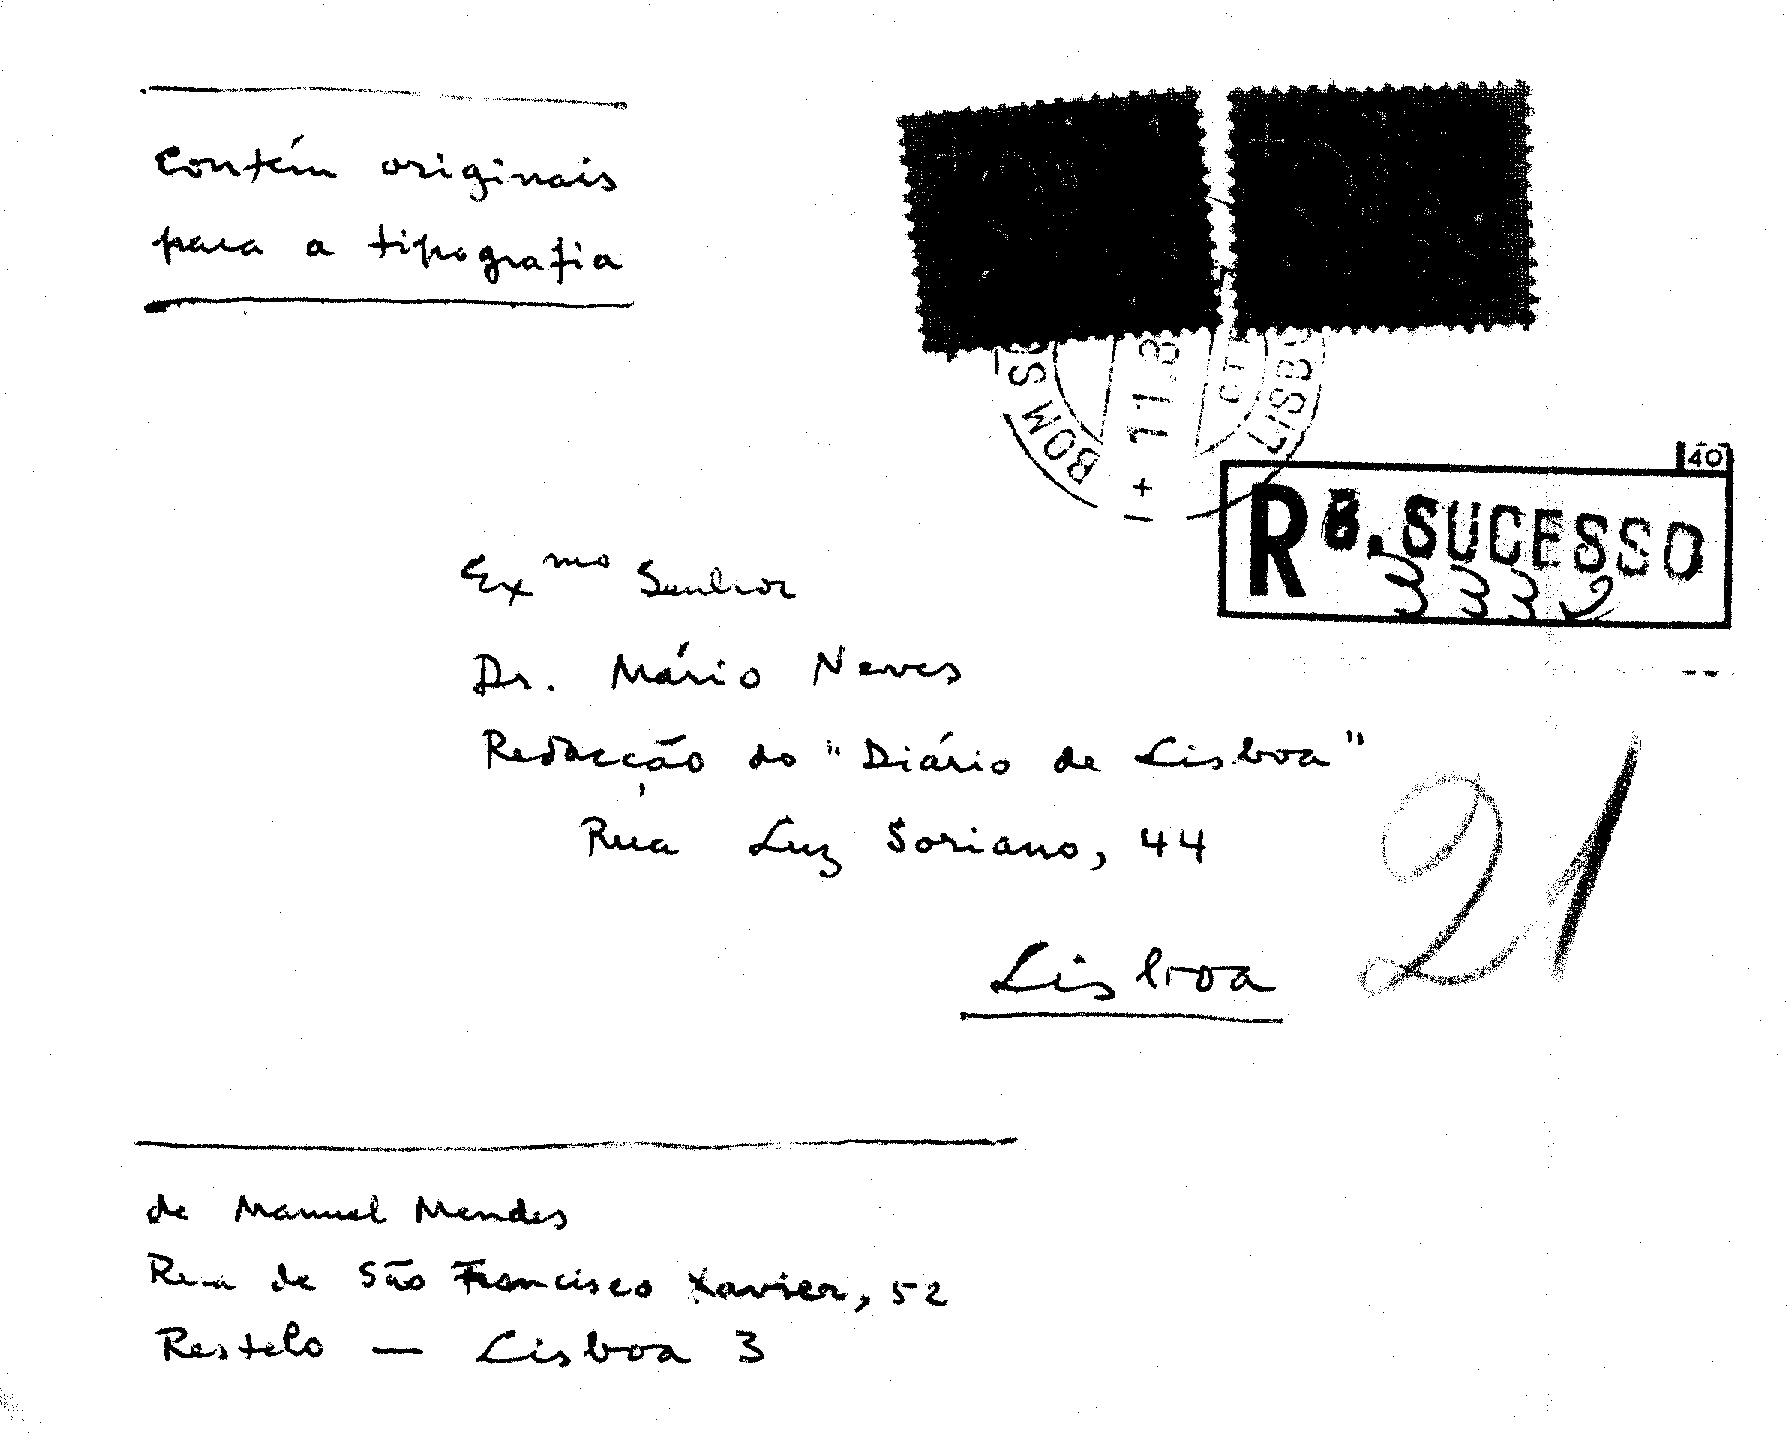 Contém originais
para a tipografia
BOM SU
+ 11.8
CT
LISBO
40
R B. SUCESSO
3332
Ex mo Senhor
Dr. Mário Neves
Redacção do "Diário de Lisboa"
Rua Luz Soriano, 44
21
Lisboa
de Manuel Mendes
Rua de São Francisco Xavier, 52
Restelo — Lisboa 3